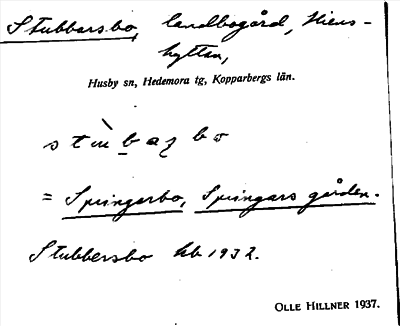 Stubbarsbo, landbogård, Hiens-
hyttan,
Husby sn, Hedemora tg, Kopparbergs län.
= Springarbo, Springars gården.
Stubbersbo hb 1932.
OLLE HILLNER 1937.